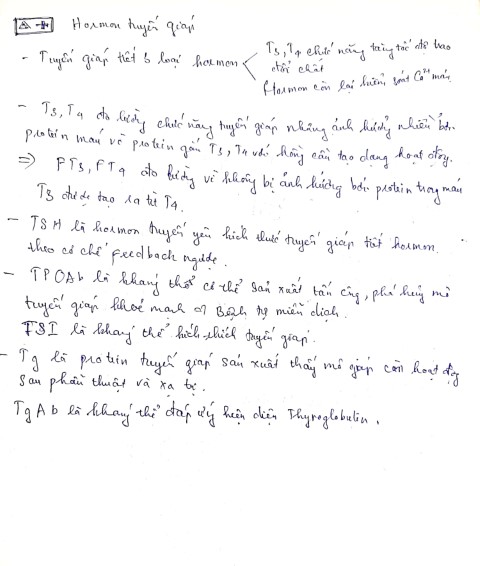 Hormon tuyến giáp
- Tuyến giáp tiết 3 loại hormon
T3, T4 chức năng tăng tốc độ trao
đổi chất
Hormon còn lại kiểm soát Ca2+ máu
- T3, T4 đo lường chức năng tuyến giáp nhưng ảnh hưởng nhiều bởi
protein máu vì protein gắn T3, T4 với hồng cầu tạo dạng hoạt động.
=> FT3, FT4 đo lường vì không bị ảnh hưởng bởi protein trong máu
T3 được tạo ra từ T4.
- TSH là hormon tuyến yên kích thích tuyến giáp tiết hormon
theo cơ chế feedback ngược.
- TPOAb là kháng thể có thể sản xuất tấn công, phá hủy mô
tuyến giáp khoẻ mạnh Bệnh tự miễn dịch.
TSI là kháng thể kích thích tuyến giáp.
- Tg là protein tuyến giáp sản xuất thấy mô giáp còn hoạt động
sau phẫu thuật và xạ trị.
TgAb là kháng thể đáp ứng hiện diện Thyroglobulin.